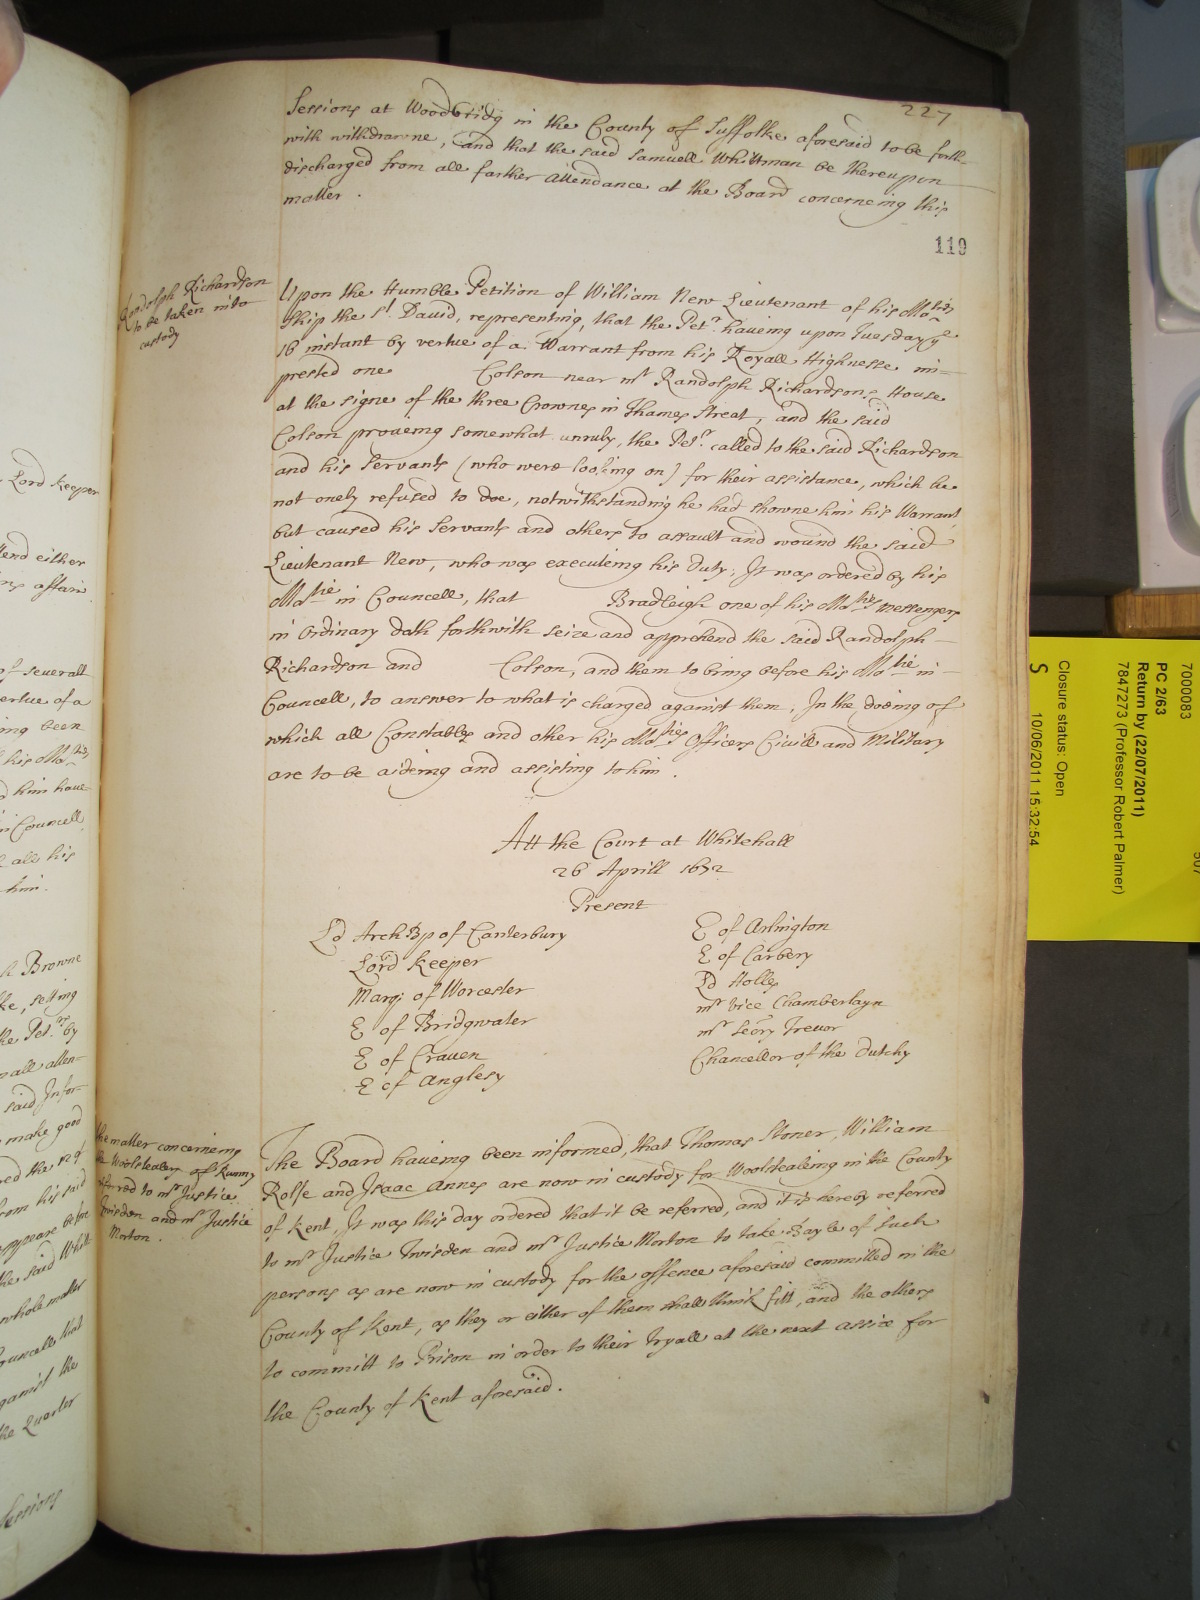 227
Sessions at Woodbridg in the County of Suffolke aforesaid to be forth-
with withdrawne, and that the said Samuell Whitman be thereupon
discharged from all farther Attendance at the Board concerneing this
matter.
119
Randolph Richardson
to be taken into
custody
Upon the Humble Petition of William New Lieutenant of his Ma:ties
Ship the St. David, representing, that the Petr. haveing upon Tuesday ye
16 instant by vertue of a Warrant from his Royall Highnesse im-
prested one Colson near mr Randolph Richardsons House
at the signe of the three Crownes in Thames Street, and the said
Colson proveing somewhat unruly, the Petr. called to the said Richardson
and his Servants (who were looking on) for their assistance, which he
not onely refused to doe, notwithstanding he had showne him his Warrant
but caused his Servants and others to assault and wound the said
Lieutenant New, who was executeing his Duty; It was ordered by his
Ma:tie in Councell, that Bradleigh one of his Ma:ties Messengers
in Ordinary doth forthwith seize and apprehend the said Randolph
Richardson and Colson, and them to bring before his Ma:tie in
Councell, to answer to what is charged against them, In the doeing of
which all Constables and other his Ma:ties Officers Civill and Military
are to be aideing and assisting to him.
Att the Court at Whitehall
26 Aprill 1672
Present
Ld ArchBp of Canterbury
Lord Keeper
Marq: of Worcester
E of Bridgwater
E of Craven
E of Anglesy
E of Arlington
E of Carbery
Ld Holles
mr Vice Chamberlayn
mr Secry Trevor
Chancellor of the Dutchy
the matter concerneing
the Woolstealers of Rumny
referred to mr Justice
Twisden and mr Justice
Morton.
The Board haveing been informed, that Thomas Stoner, William
Rolfe and Isaac Annes are now in custody for Woolstealeing in the County
of Kent, It was this day ordered that it be referred, and it is hereby referred
to mr Justice Twisden and mr Justice Morton to take Bayle of such
persons as are now in custody for the offence aforesaid committed in the
County of Kent, as they or either of them shall think fitt, and the others
to committ to Prison in order to their Tryall at the next Assize for
the County of Kent aforesaid.
Lord Keeper
tend either
affair
of severall
vertue of a
been
his Ma:ties
him have
in Councell
all his
him.
Browne
setting
the Petr. by
small atten-
said Infor-
make good
from his said
appeare before
the said Whit-
whole matter
Councell that
against the
the Quarter
Sessions
7000083
PC 2/63
Return by (22/07/2011)
7847273 (Professor Robert Palmer)
Closure status: Open
S 10/06/2011 15:32:54